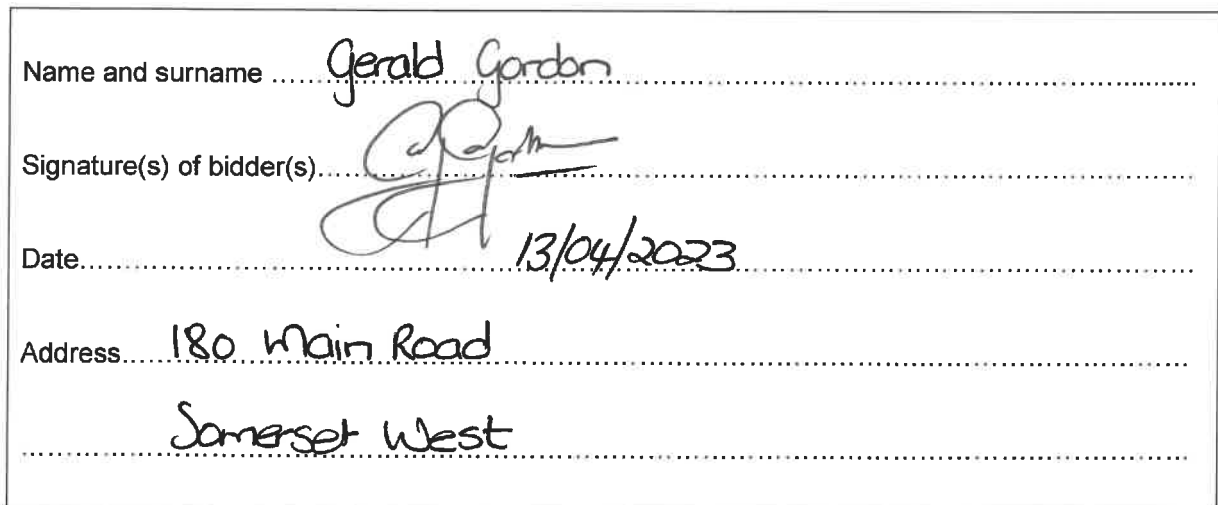 Name and surname ..... Gerald Gordon
Signature(s) of bidder(s)
Date 13/04/2023
Address 180 Main Road
Somerset West